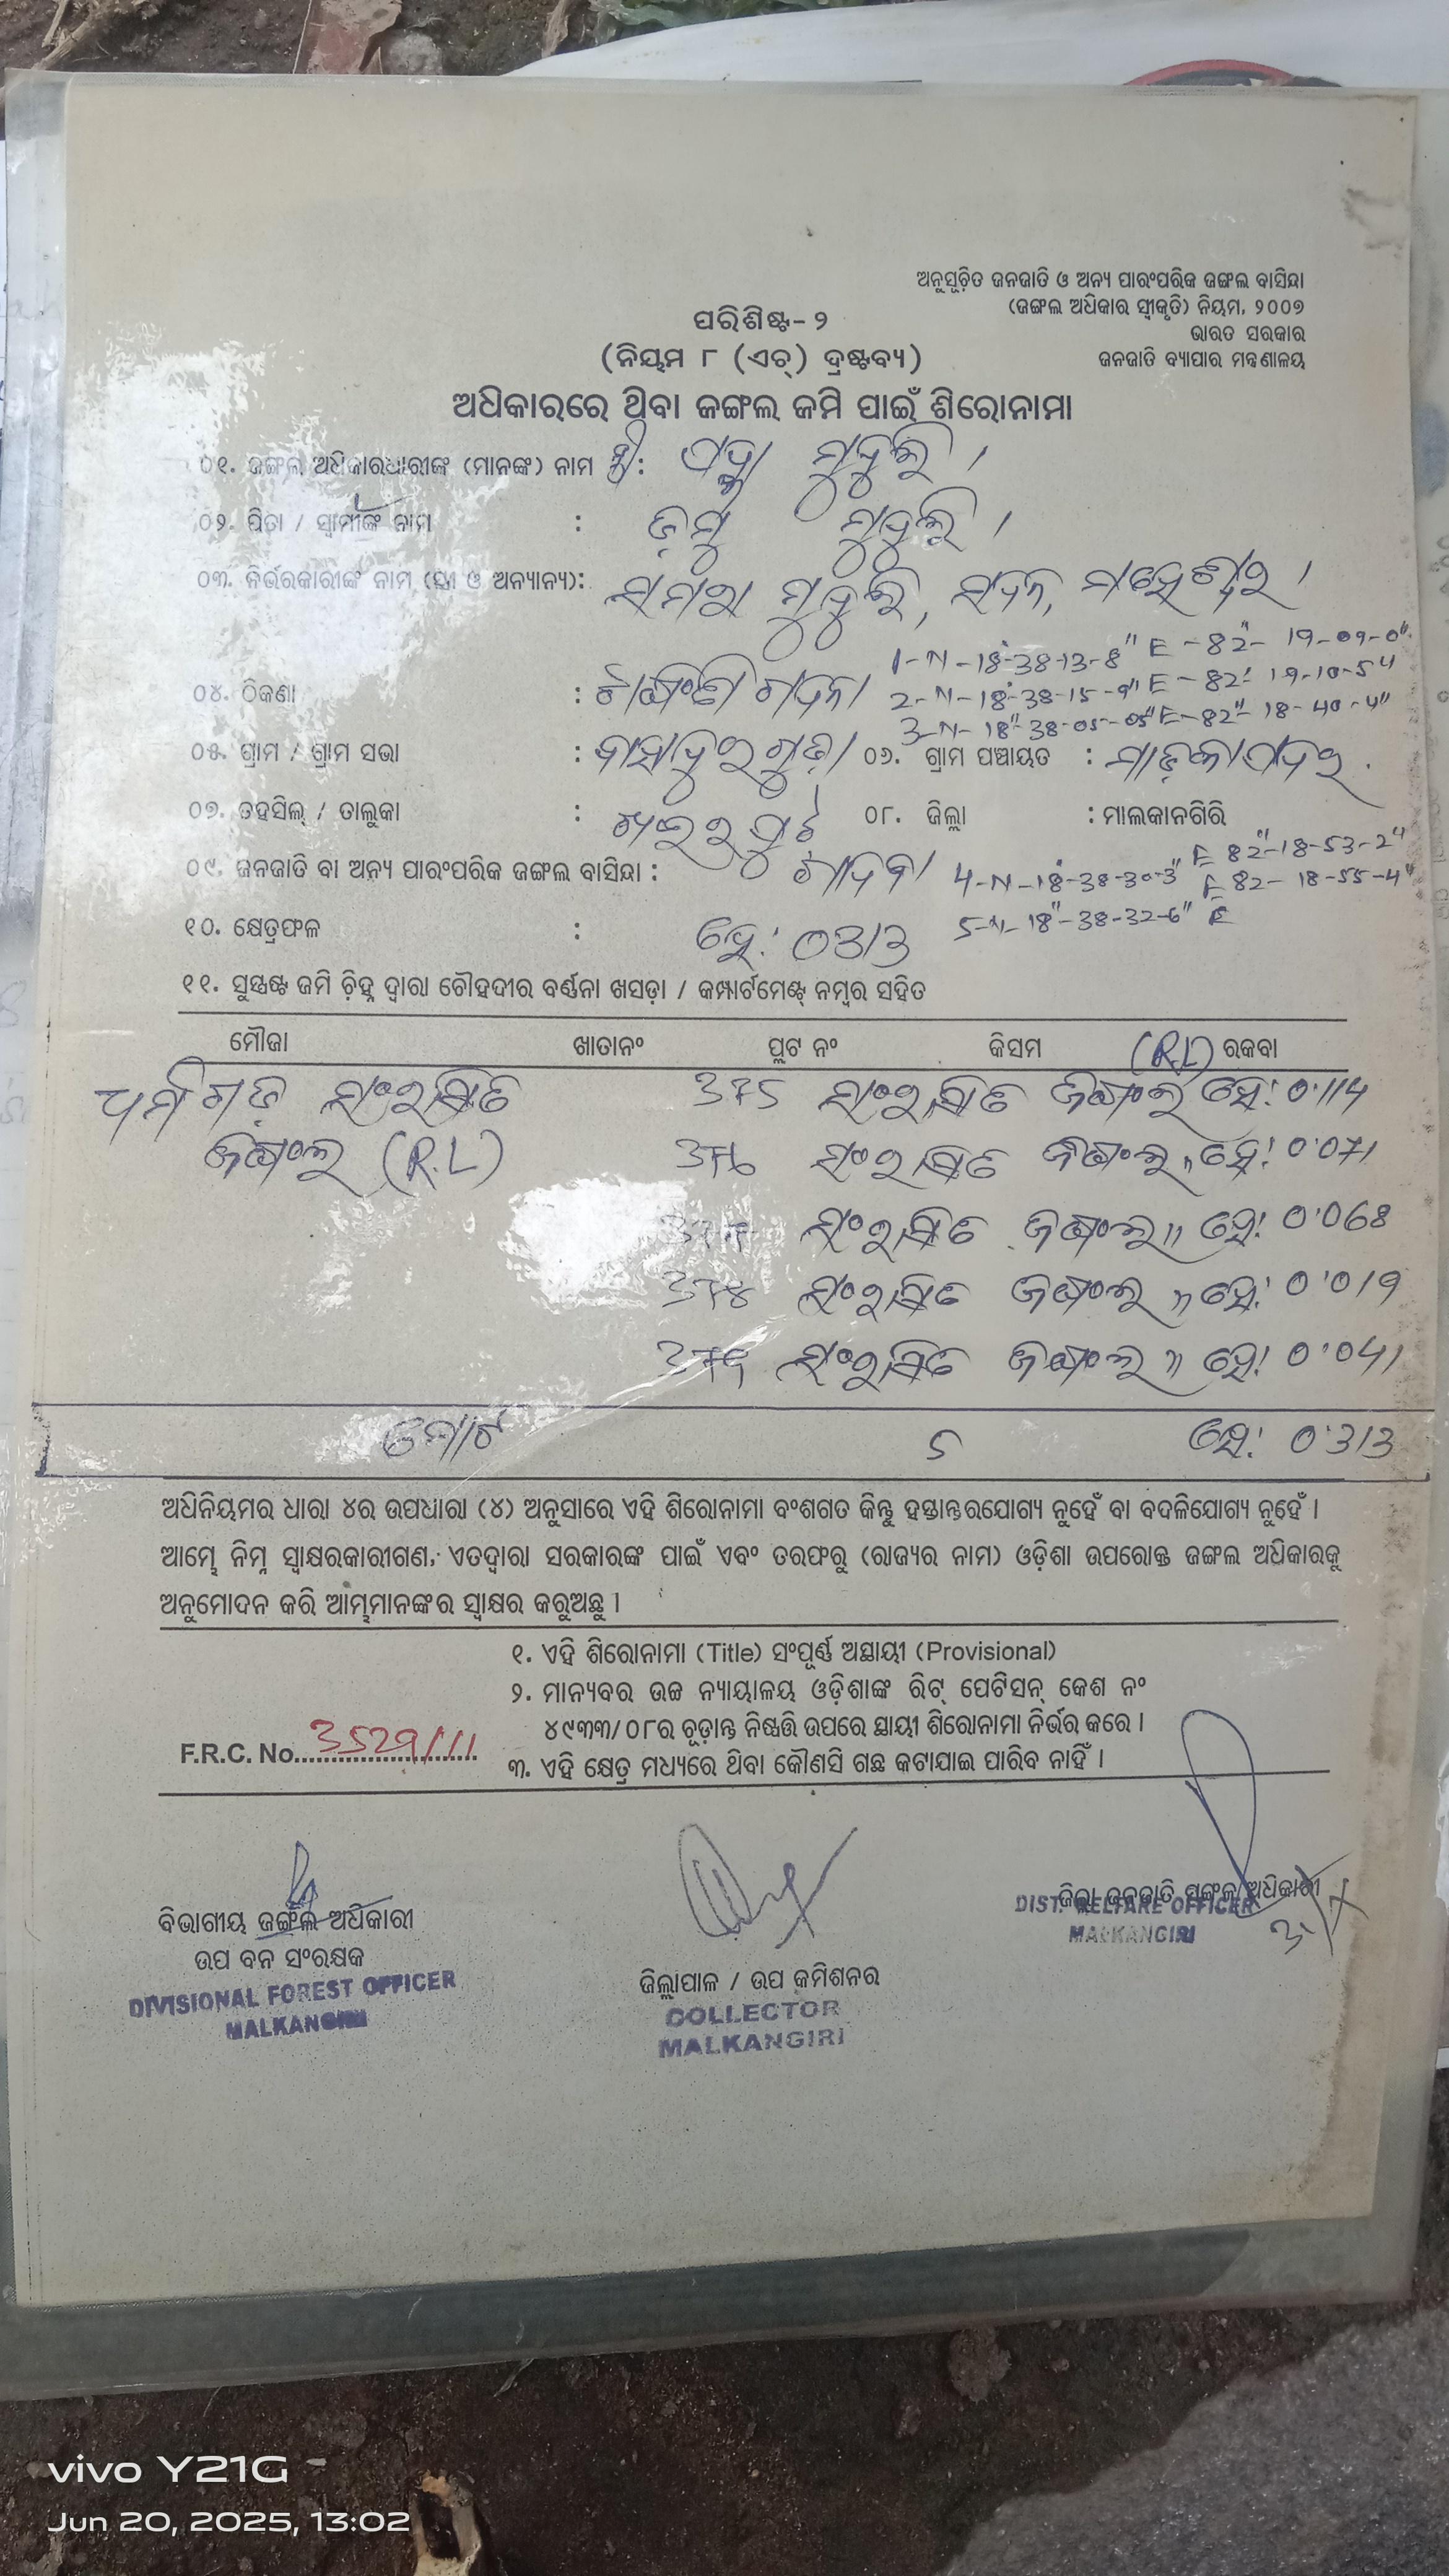 ଅନୁସୂଚିତ ଜନଜାତି ଓ ଅନ୍ୟ ପାରଂପରିକ ଜଙ୍ଗଲ ବାସିନ୍ଦା
(ଜଙ୍ଗଲ ଅଧିକାର ସ୍ୱୀକୃତି) ନିୟମ, ୨୦୦୭
ଭାରତ ସରକାର
ଜନଜାତି ବ୍ୟାପାର ମନ୍ତ୍ରଣାଳୟ
ପରିଶିଷ୍ଟ - ୨
(ନିୟମ ୮ (ଏଚ୍) ଦ୍ରଷ୍ଟବ୍ୟ)
ଅଧିକାରରେ ଥିବା ଜଙ୍ଗଲ ଜମି ପାଇଁ ଶିରୋନାମା
୦୧. ଜଙ୍ଗଲ ଅଧିକାରଧାରୀଙ୍କ (ମାନଙ୍କ) ନାମ ଶ୍ରୀ : ମୁଦୁଲି ।
୦୨. ପିତା / ସ୍ୱାମୀଙ୍କ ନାମ : ମୁଦୁଲି ।
୦୩. ନିର୍ଭରକାରୀଙ୍କ ନାମ (ସ୍ତ୍ରୀ ଓ ଅନ୍ୟାନ୍ୟ): ମୁଦୁଲି,
1-N-18-38-13-8" E-82-19-09-0"
୦୪. ଠିକଣା : 2-N-18-38-15-9" E-82-19-10-5"
3-N-18-38-05-05" E-82-18-40-4"
୦୫. ଗ୍ରାମ / ଗ୍ରାମ ସଭା : ୦୬. ଗ୍ରାମ ପଞ୍ଚାୟତ :
୦୭. ତହସିଲ୍ / ତାଲୁକା : ଖଇରପୁଟ ୦୮. ଜିଲ୍ଲା : ମାଲକାନଗିରି
୦୯. ଜନଜାତି ବା ଅନ୍ୟ ପାରଂପରିକ ଜଙ୍ଗଲ ବାସିନ୍ଦା : 4-N-18-38-30-3" E 82-18-53-2"
୧୦. କ୍ଷେତ୍ରଫଳ : ହେ: ୦313 5-N-18-38-32-6" E 82-18-55-4"
୧୧. ସୁସ୍ପଷ୍ଟ ଜମି ଚିହ୍ନ ଦ୍ୱାରା ଚୌହଦୀର ବର୍ଣ୍ଣନା ଖସଡ଼ା / କମ୍ପାର୍ଟମେଣ୍ଟ୍ ନମ୍ବର ସହିତ
ମୌଜା ଖାତାନଂ ପ୍ଲଟ ନଂ କିସମ (R.L) ରକବା
ସଂରକ୍ଷିତ 375 ସଂରକ୍ଷିତ ଜଙ୍ଗଲ ହେ: 0.114
ଜଙ୍ଗଲ (R.L) 376 ସଂରକ୍ଷିତ ଜଙ୍ଗଲ " ହେ: 0.071
ସଂରକ୍ଷିତ ଜଙ୍ଗଲ " ହେ: 0.068
ସଂରକ୍ଷିତ ଜଙ୍ଗଲ " ହେ: 0.019
ସଂରକ୍ଷିତ ଜଙ୍ଗଲ " ହେ: 0.041
ମୋଟ 5 ହେ: 0.313
ଅଧିନିୟମର ଧାରା ୪ର ଉପଧାରା (୪) ଅନୁସାରେ ଏହି ଶିରୋନାମା ବଂଶଗତ କିନ୍ତୁ ହସ୍ତାନ୍ତରଯୋଗ୍ୟ ନୁହେଁ ବା ବଦଳିଯୋଗ୍ୟ ନୁହେଁ ।
ଆମ୍ଭେ ନିମ୍ନ ସ୍ୱାକ୍ଷରକାରୀଗଣ, ଏତଦ୍ଦ୍ୱାରା ସରକାରଙ୍କ ପାଇଁ ଏବଂ ତରଫରୁ (ରାଜ୍ୟର ନାମ) ଓଡ଼ିଶା ଉପରୋକ୍ତ ଜଙ୍ଗଲ ଅଧିକାରକୁ
ଅନୁମୋଦନ କରି ଆମ୍ଭମାନଙ୍କର ସ୍ୱାକ୍ଷର କରୁଅଛୁ ।
୧. ଏହି ଶିରୋନାମା (Title) ସଂପୂର୍ଣ୍ଣ ଅସ୍ଥାୟୀ (Provisional)
୨. ମାନ୍ୟବର ଉଚ୍ଚ ନ୍ୟାୟାଳୟ ଓଡ଼ିଶାଙ୍କ ରିଟ୍ ପେଟିସନ୍ କେଶ ନଂ
୪୯୩୩/୦୮ର ଚୂଡ଼ାନ୍ତ ନିଷ୍ପତ୍ତି ଉପରେ ସ୍ଥାୟୀ ଶିରୋନାମା ନିର୍ଭର କରେ ।
F.R.C. No. 3529/11
୩. ଏହି କ୍ଷେତ୍ର ମଧ୍ୟରେ ଥିବା କୌଣସି ଗଛ କଟାଯାଇ ପାରିବ ନାହିଁ ।
ବିଭାଗୀୟ ଜଙ୍ଗଲ ଅଧିକାରୀ
ଉପ ବନ ସଂରକ୍ଷକ
DIVISIONAL FOREST OFFICER
MALKANGIRI
ଜିଲ୍ଲାପାଳ / ଉପ କମିଶନର
COLLECTOR
MALKANGIRI
ଜିଲ୍ଲା ଜନଜାତି ମଙ୍ଗଳ ଅଧିକାରୀ
DIST. WELFARE OFFICER
MALKANGIRI
vivo Y21G
Jun 20, 2025, 13:02